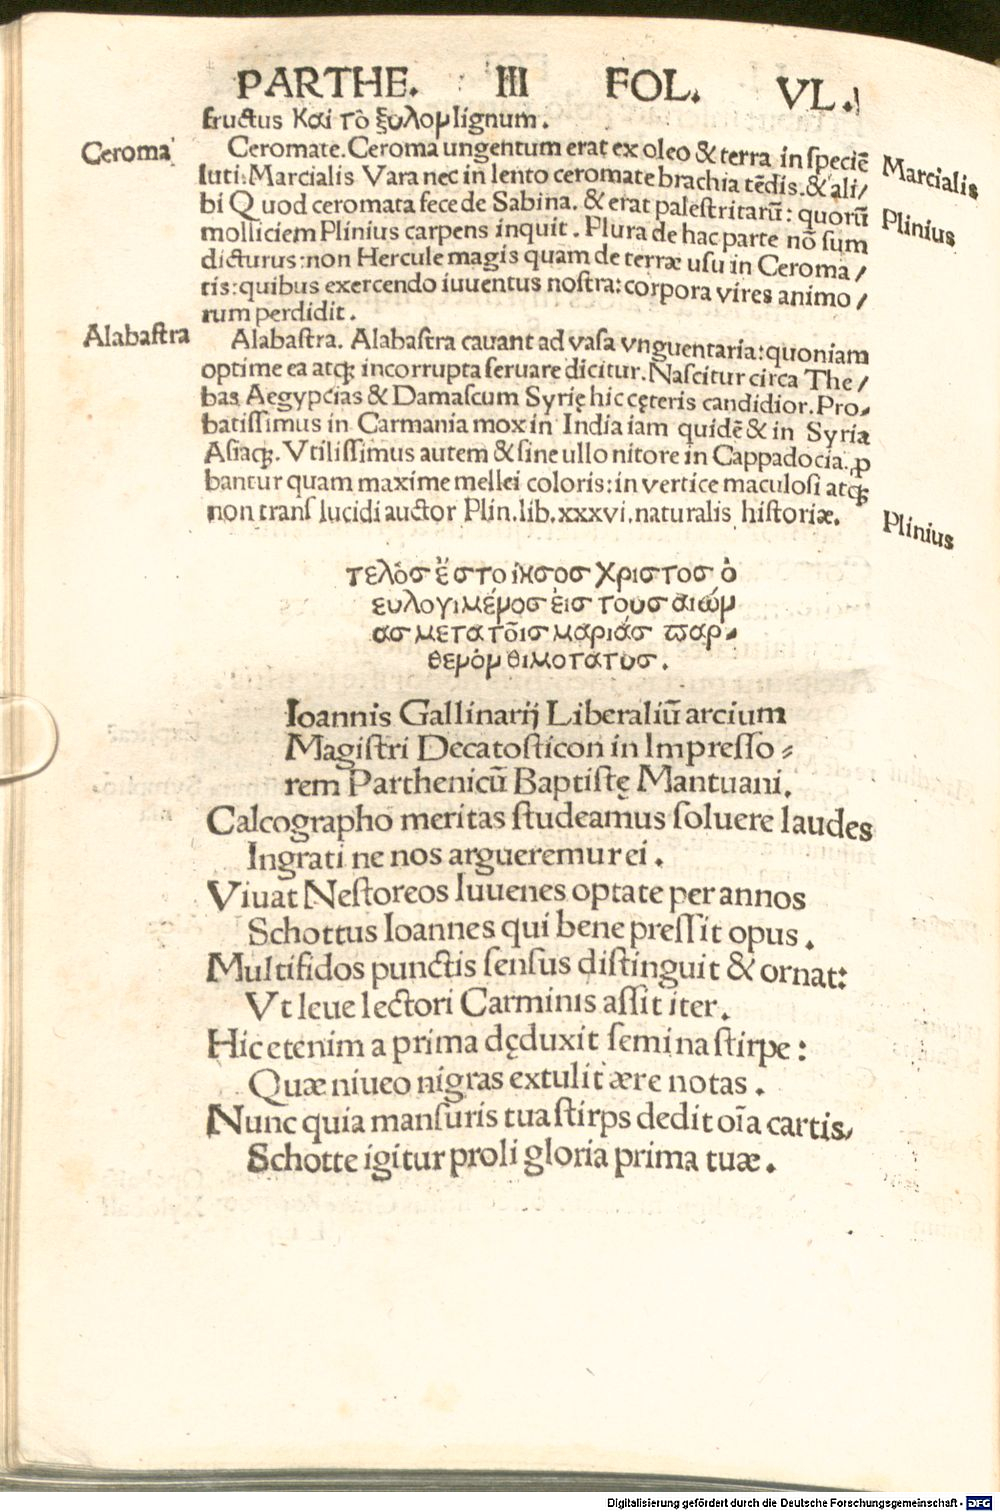 PARTHE. III FOL. VL.
fructus Και τὸ ξυλομ lignum.
Ceroma
Ceromate. Ceroma unguentum erat ex oleo & terra in speciē
Marcialis
luti: Marcialis Vara nec in lento ceromate brachia tēdis. & ali/
bi Quod ceromata fece de Sabina. & erat palestritarū: quorū
Plinius
molliciem Plinius carpens inquit. Plura de hac parte nō sum
dicturus: non Hercule magis quam de terræ usu in Ceroma/
tis: quibus exercendo iuuentus nostra: corpora vires animo/
rum perdidit.
Alabastra
Alabastra. Alabastra cauant ad vasa vnguentaria: quoniam
optime ea atqꝫ incorrupta seruare dicitur. Nascitur circa The/
bas Aegypcias & Damascum Syrię hic cęteris candidior. Pro-
batissimus in Carmania mox in India iam quidē & in Syria
Asiaqꝫ. Vtilissimus autem & sine ullo nitore in Cappadocia. ꝓ
bantur quam maxime mellei coloris: in vertice maculosi atqꝫ
non trans lucidi auctor Plin. lib. xxxvi. naturalis historiæ.
Plinius
τελὸσ ἔστο ιησοσ χριστοσ ὁ
ευλογιμέμοσ ἐισ τουσ αιώμ
ασ μετα τõισ μαριάσ παρ-
θεμόμ θιμοτατυσ.
Ioannis Gallinarij Liberaliū arcium
Magistri Decatosticon in Impresso⸗
rem Parthenicū Baptistę Mantuani.
Calcographo meritas studeamus soluere laudes
Ingrati ne nos argueremur ei.
Viuat Nestoreos Iuuenes optate per annos
Schottus Ioannes qui bene pressit opus.
Multifidos punctis sensus distinguit & ornat:
Vt leue lectori Carminis assit iter.
Hic etenim a prima dęduxit semina stirpe:
Quæ niueo nigras extulit ære notas.
Nunc quia mansuris tua stirps dedit oīa cartis,
Schotte igitur proli gloria prima tuæ.
Digitalisierung gefördert durch die Deutsche Forschungsgemeinschaft - DFG